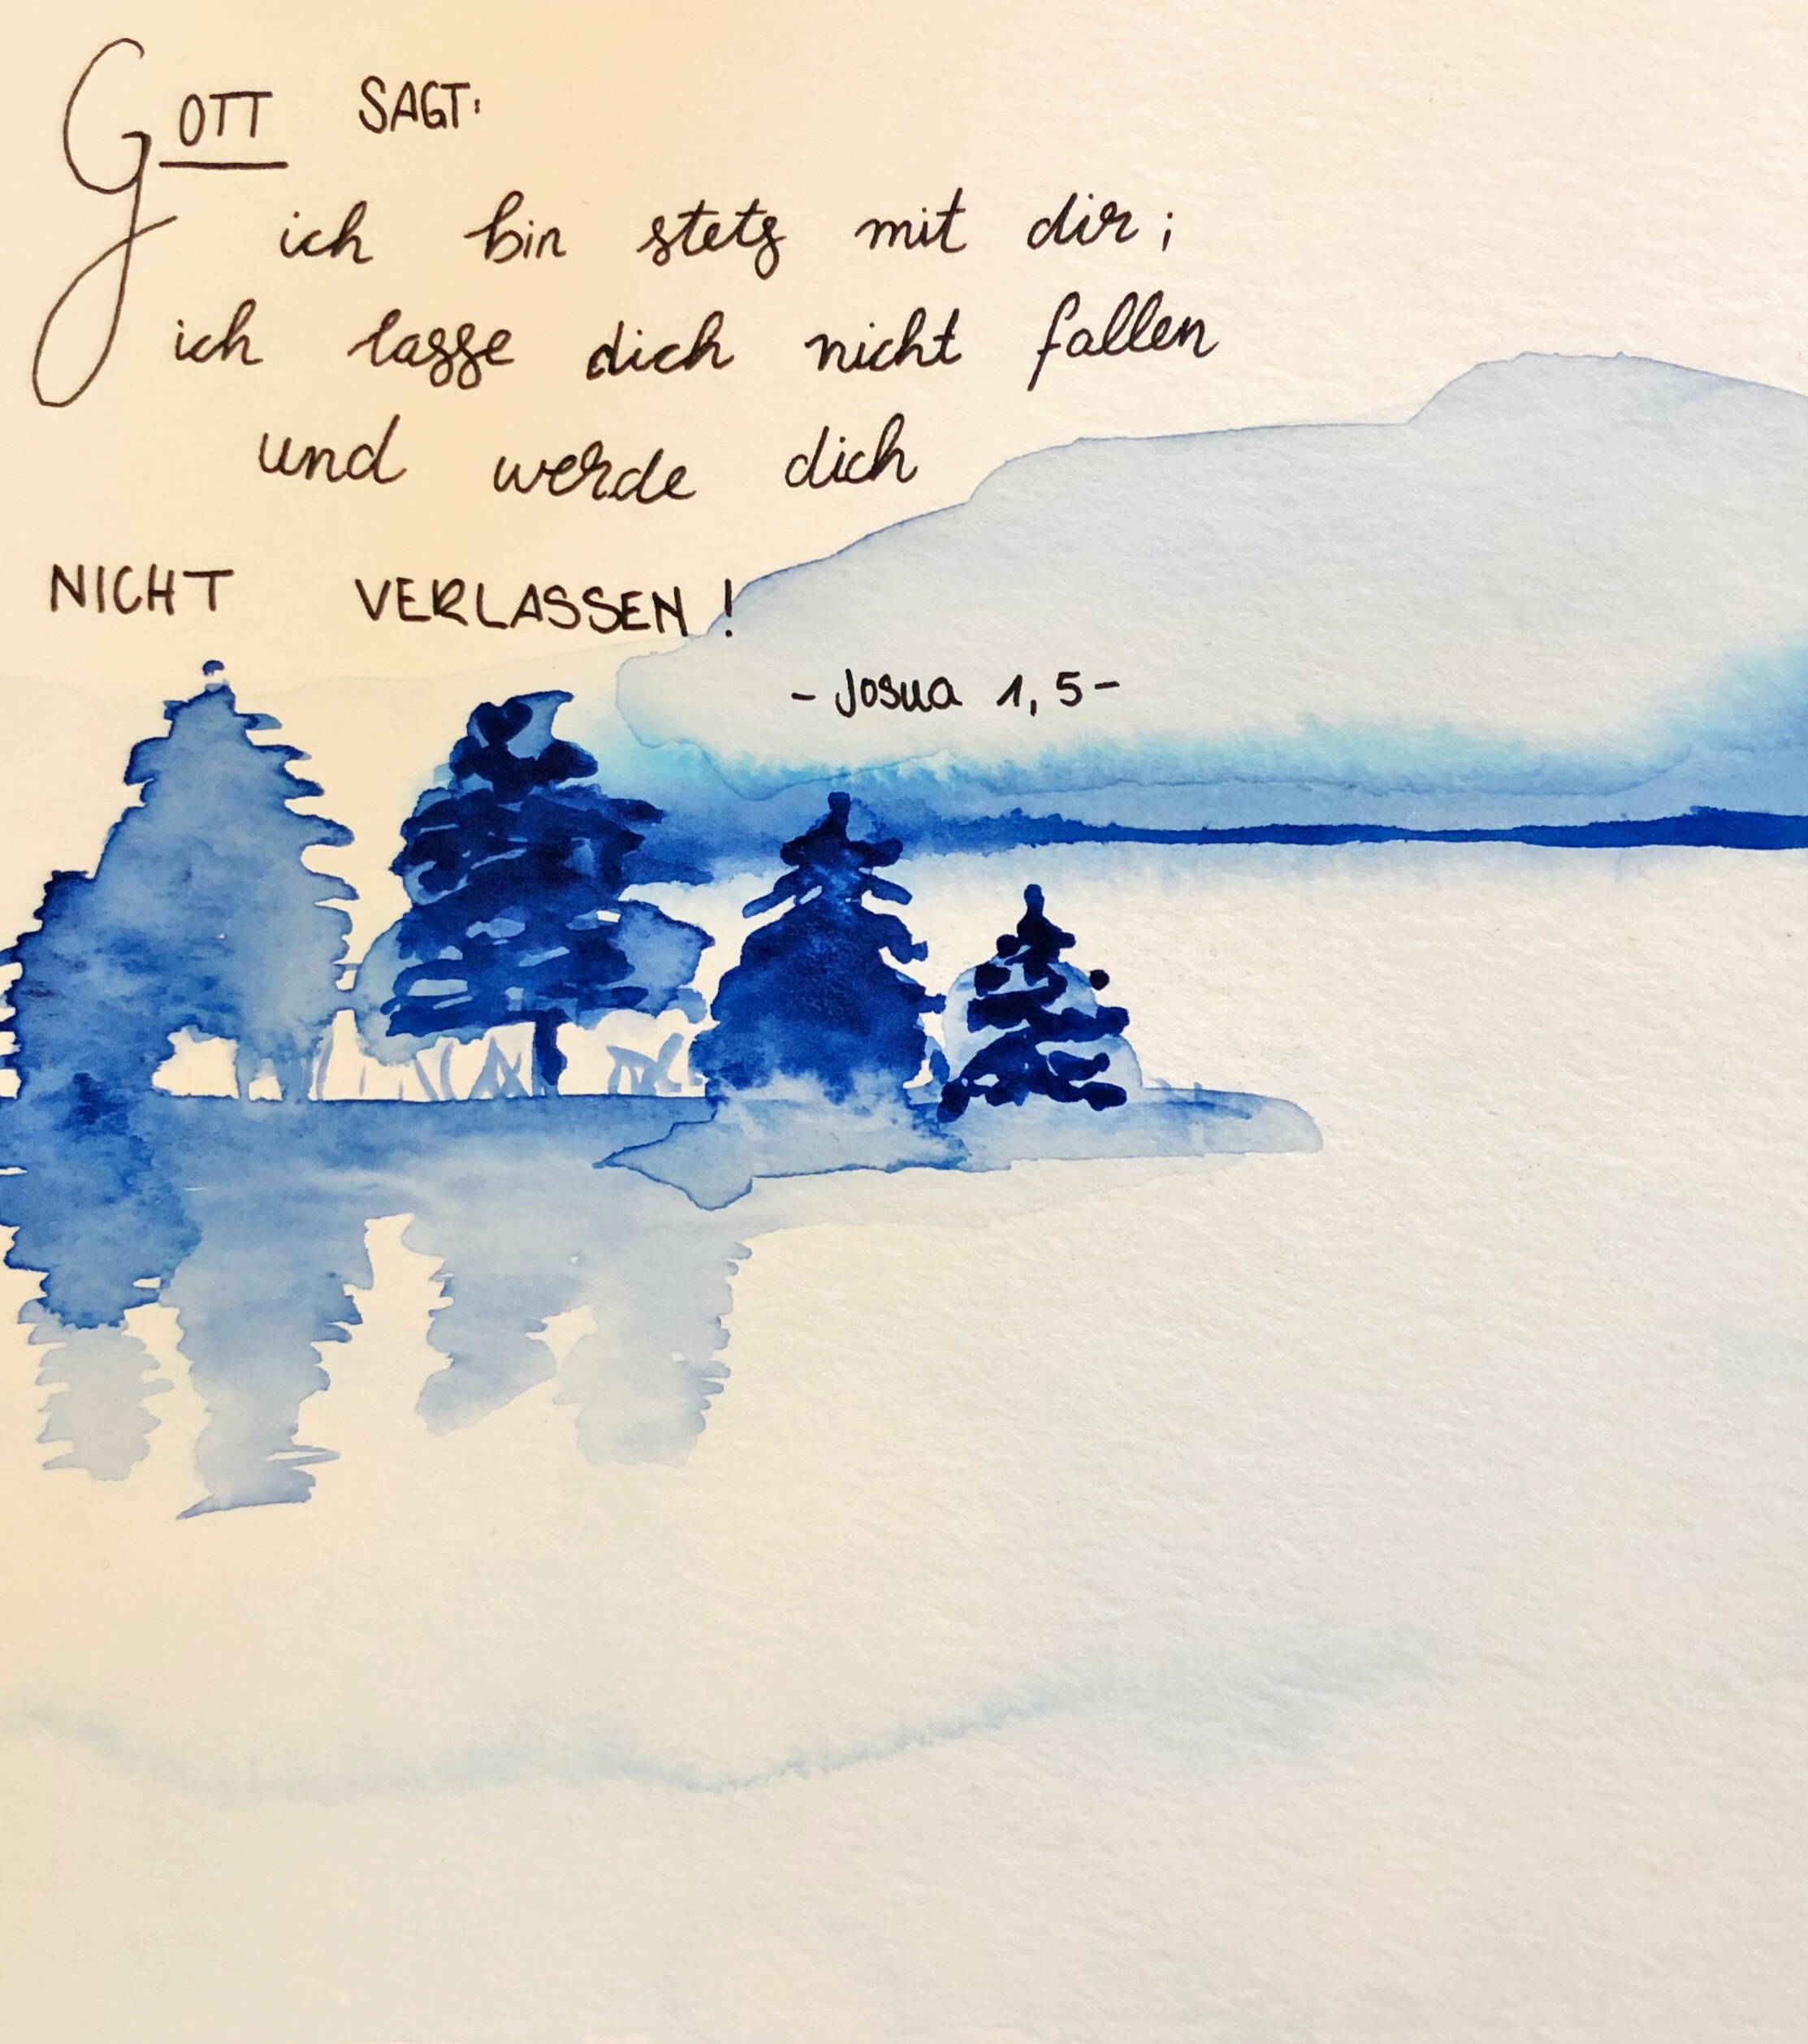 GOTT SAGT:
ich bin stets mit dir;
ich lasse dich nicht fallen
und werde dich
NICHT VERLASSEN!
- Josua 1,5-